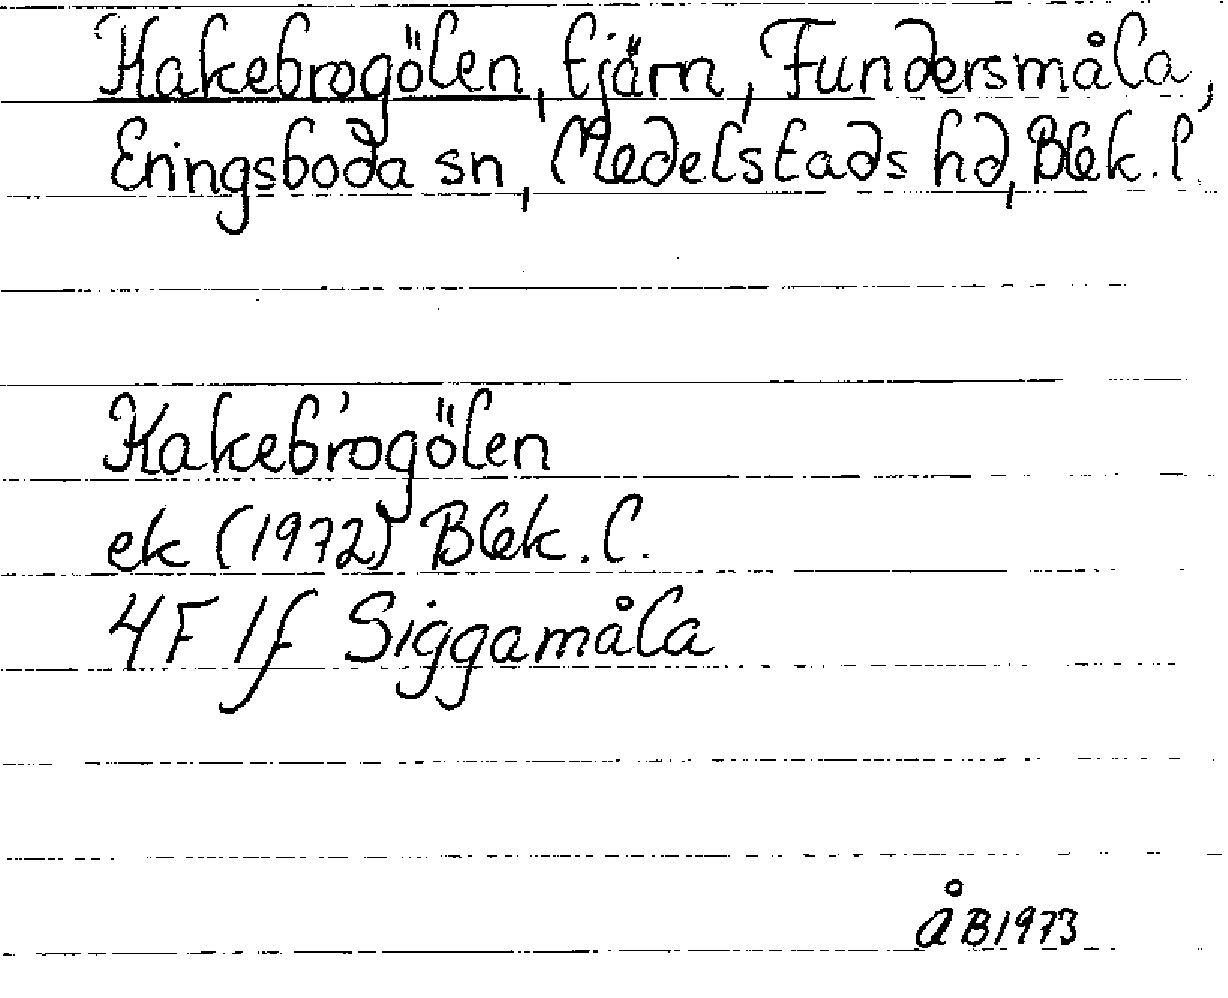 Kakebrogölen, tjärn, Fundersmåla,
Eringsboda sn, Medelstads hd, Blek. l.
Kakebrogölen
ek (1972) Blek. l.
4F 1f Siggamåla
ÅB 1973